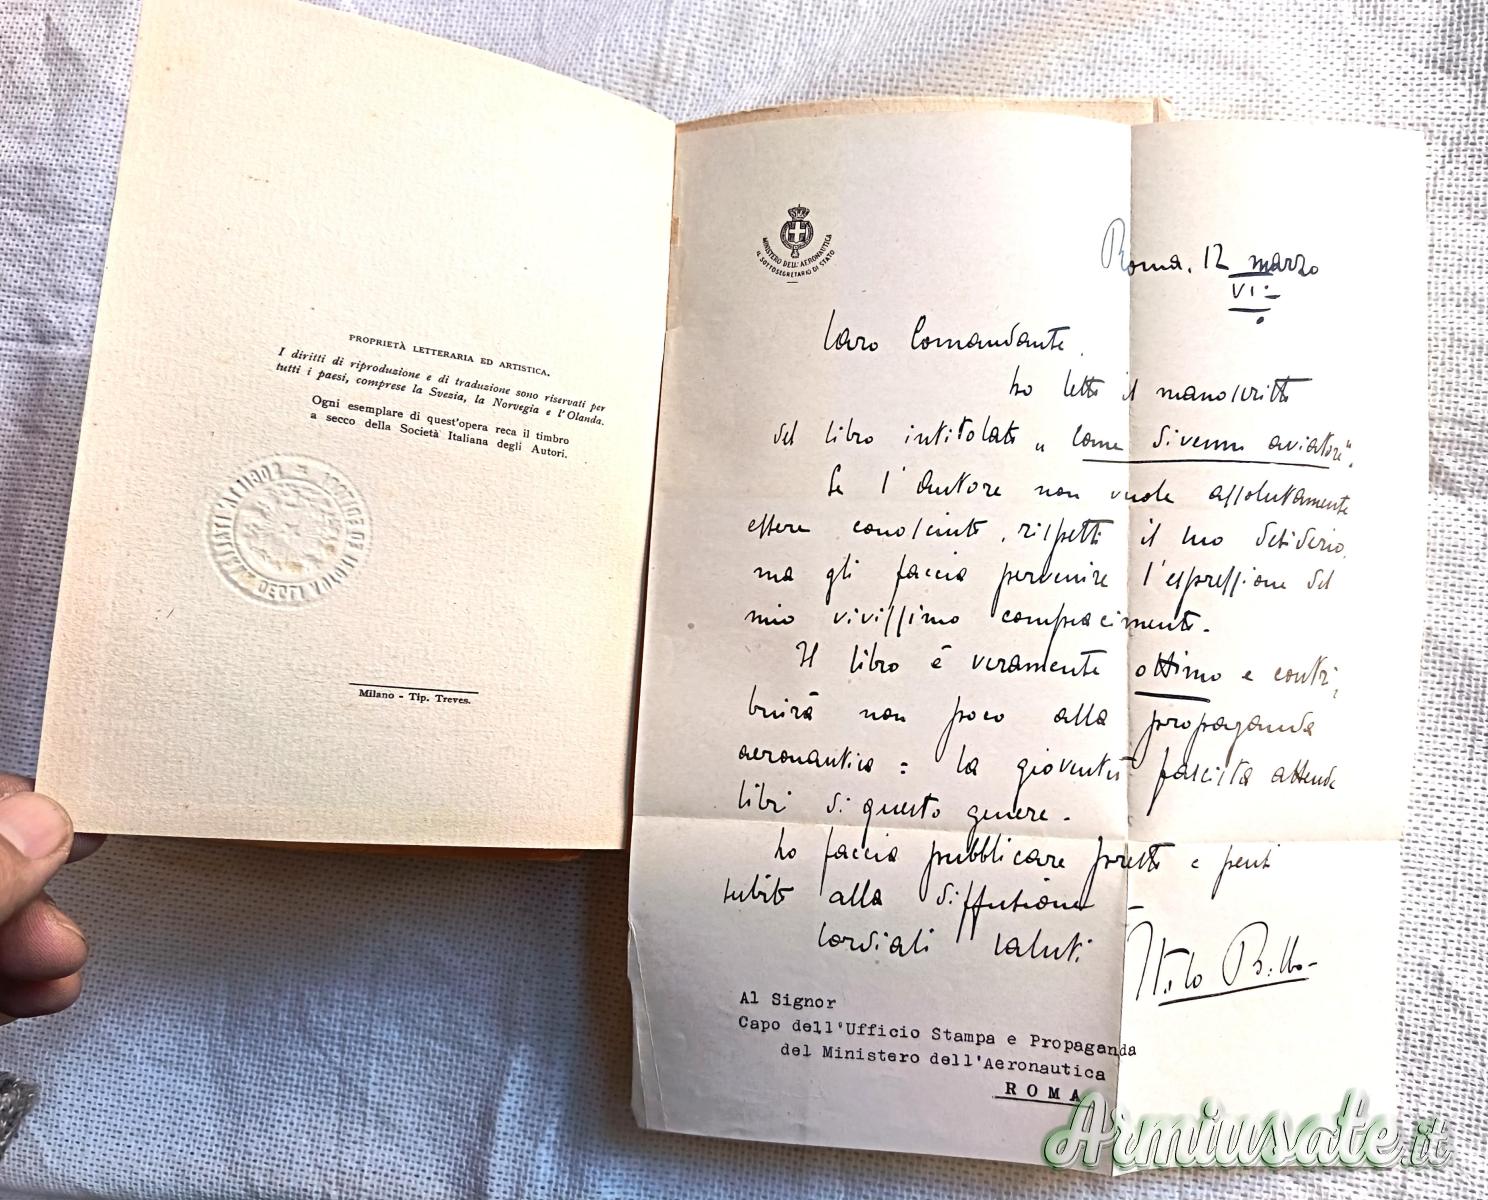 PROPRIETÀ LETTERARIA ED ARTISTICA.
I diritti di riproduzione e di traduzione sono riservati per
tutti i paesi, comprese la Svezia, la Norvegia e l'Olanda.
Ogni esemplare di quest'opera reca il timbro
a secco della Società Italiana degli Autori.
Milano - Tip. Treves.
MINISTERO DELL'AERONAUTICA
IL SOTTOSEGRETARIO DI STATO
Roma, 12 marzo
VI
Caro Comandante,
ho letto il manoscritto
del libro intitolato "Come divenni aviatore".
Se l'autore non vuole assolutamente
essere conosciuto, rispetti il suo desiderio,
ma gli faccia pervenire l'espressione del
mio vivissimo compiacimento.
Il libro è veramente ottimo e contri-
buirà non poco alla propaganda
aeronautica: la gioventù fascista attende
libri di questo genere.
Lo faccia pubblicare presto e pensi
subito alla diffusione -
Cordiali saluti
Italo Balbo
Al Signor
Capo dell'Ufficio Stampa e Propaganda
del Ministero dell'Aeronautica
ROMA
Armiusate.it